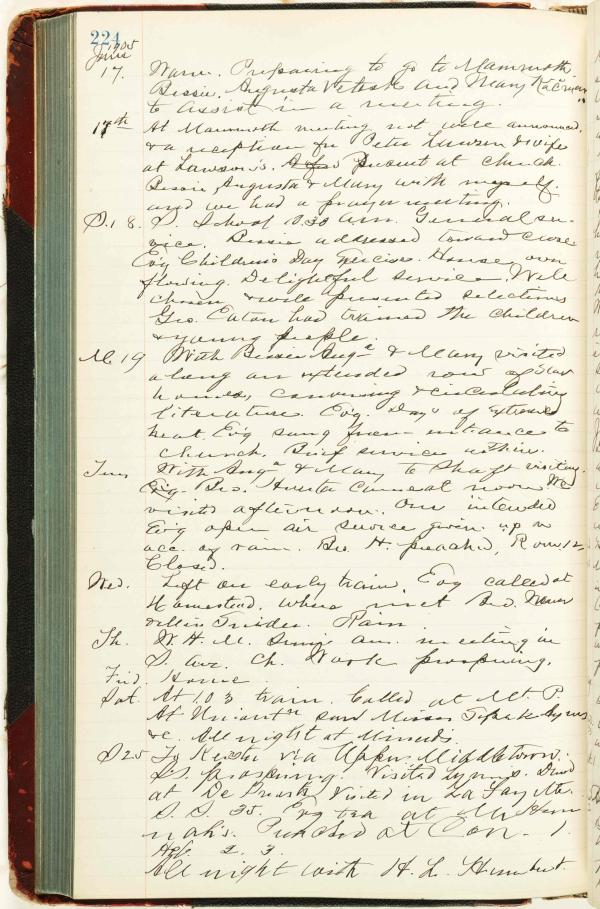 224
June 1905
17. Warm. Preparing to go to Mammoth
Bessie, Augusta and Mary
to assist in a meeting.
17th At Mammoth meeting not well announced,
& a reception for Peter Lawson & wife
at Lawson's. A few present at church.
Bessie, Augusta & Mary with myself.
and we had a prayer meeting.
S. 18. S. School 10.30 a.m. General ser-
vice. Bessie addressed toward close
Ev'g Children's Day Exercises. House over
flowing. Delightful service. Well
chosen & well presented selections
Geo. Eaton had trained the children
& young people.
M 19 With Bessie Augª & Mary visited
along an extended row of Slav
homes, conversing & circulating
literature. Ev'g. Day of extreme
heat. Ev'g sang from entrance to
church. Brief service within.
Tues With Augª & Mary to Shaft visiting.
Ev'g. Bro. came at noon We
visited afternoon. Our intended
Ev'g open air service given up on
acc. of rain. Bro. H. preached, Rom 12
Closed.
Wed. Left on early train. Ev'g called at
Homestead. Where met Bro.
& Miss Rain.
Th. W. H. M. am. meeting in
S. Ave. Ch. Work prospering.
Frid. Home
Sat. At 1.03 train. Called at Mt. P.
At Uniontn saw Misses
&c. All night at
S 25 To via Upper Middletown.
S.S. prospering. Visited Lynns. Dined
at Visited in La Fayette.
S. S. 35. Ev'g tea at
nah's. Preached at Con. 1.
2. 3.
All night with H. L. Humbert.